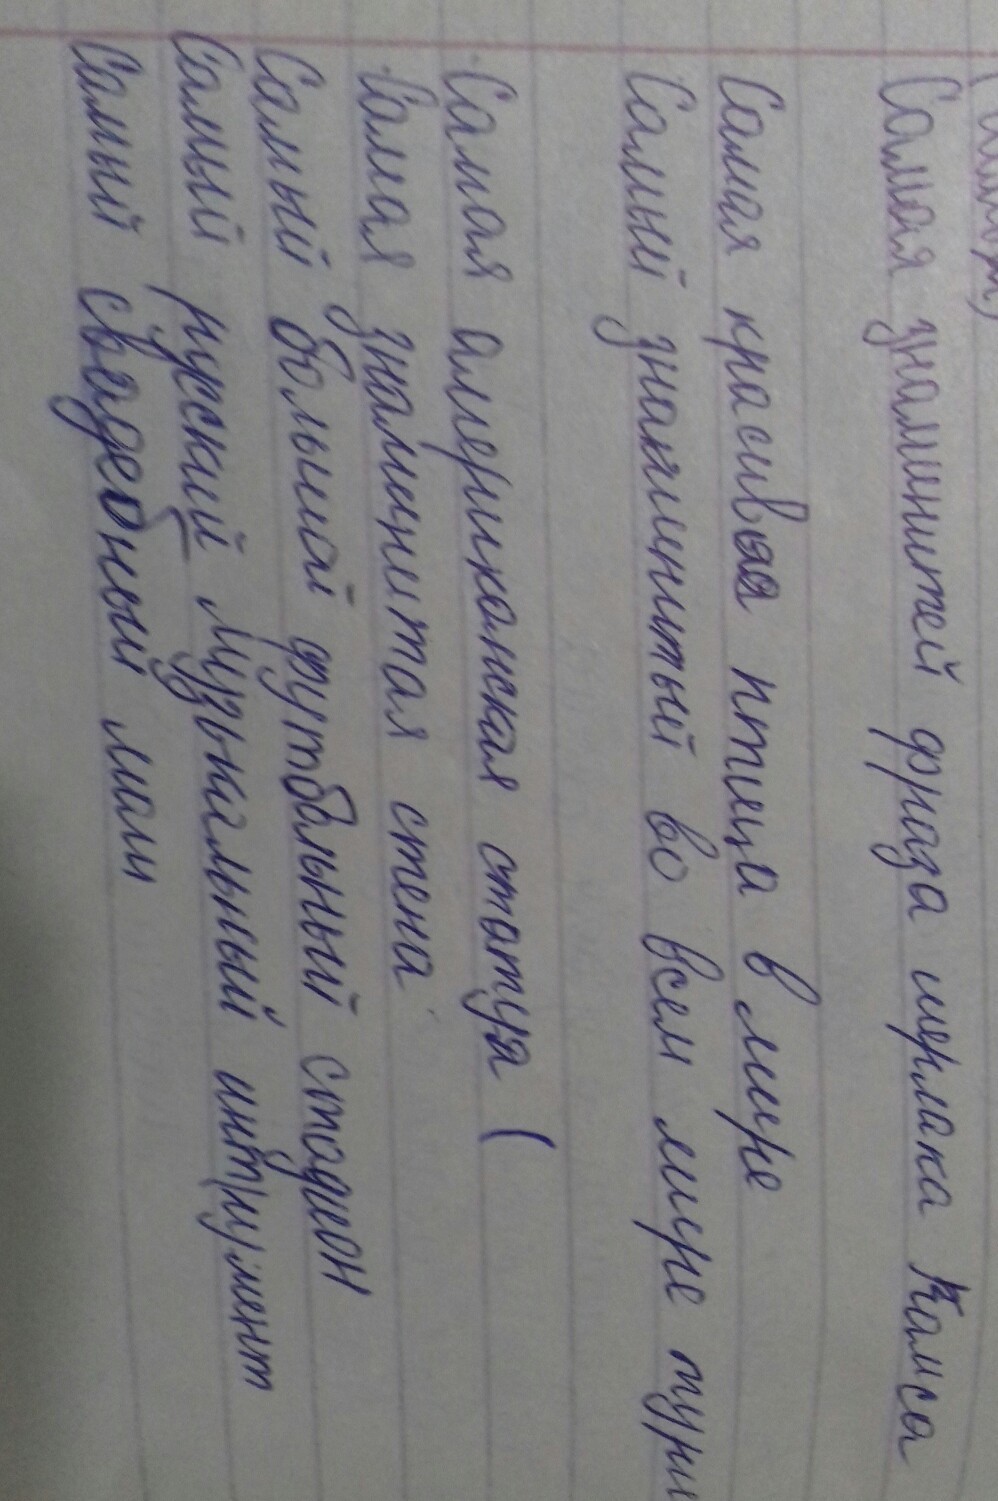 Самая знаминитей фраза шерлака Холмса
Самая красивая птица в мире
Самый знаминитый во всем мире
Самая американская статуя (
Самая знаменитая стена
Самый большой футбальный стадион
Самый русский музыкальный интрумент
Самый свадебный